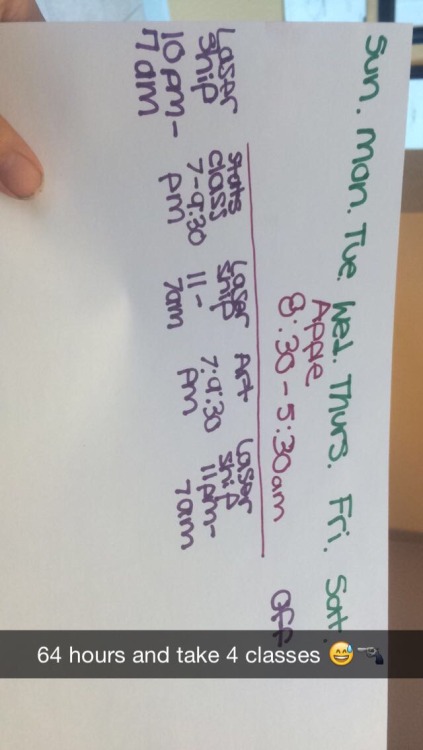 Sun. Mon. Tue. Wed. Thurs. Fri. Sat.
Apple
8:30 - 5:30am
Laser
Ship
10pm-
7am
Stats
class
7-9:30
pm
Laser
Ship
11-
7am
Art
7:9:30
pm
Laser
Ship
11pm-
7am
off
64 hours and take 4 classes 😅🔫